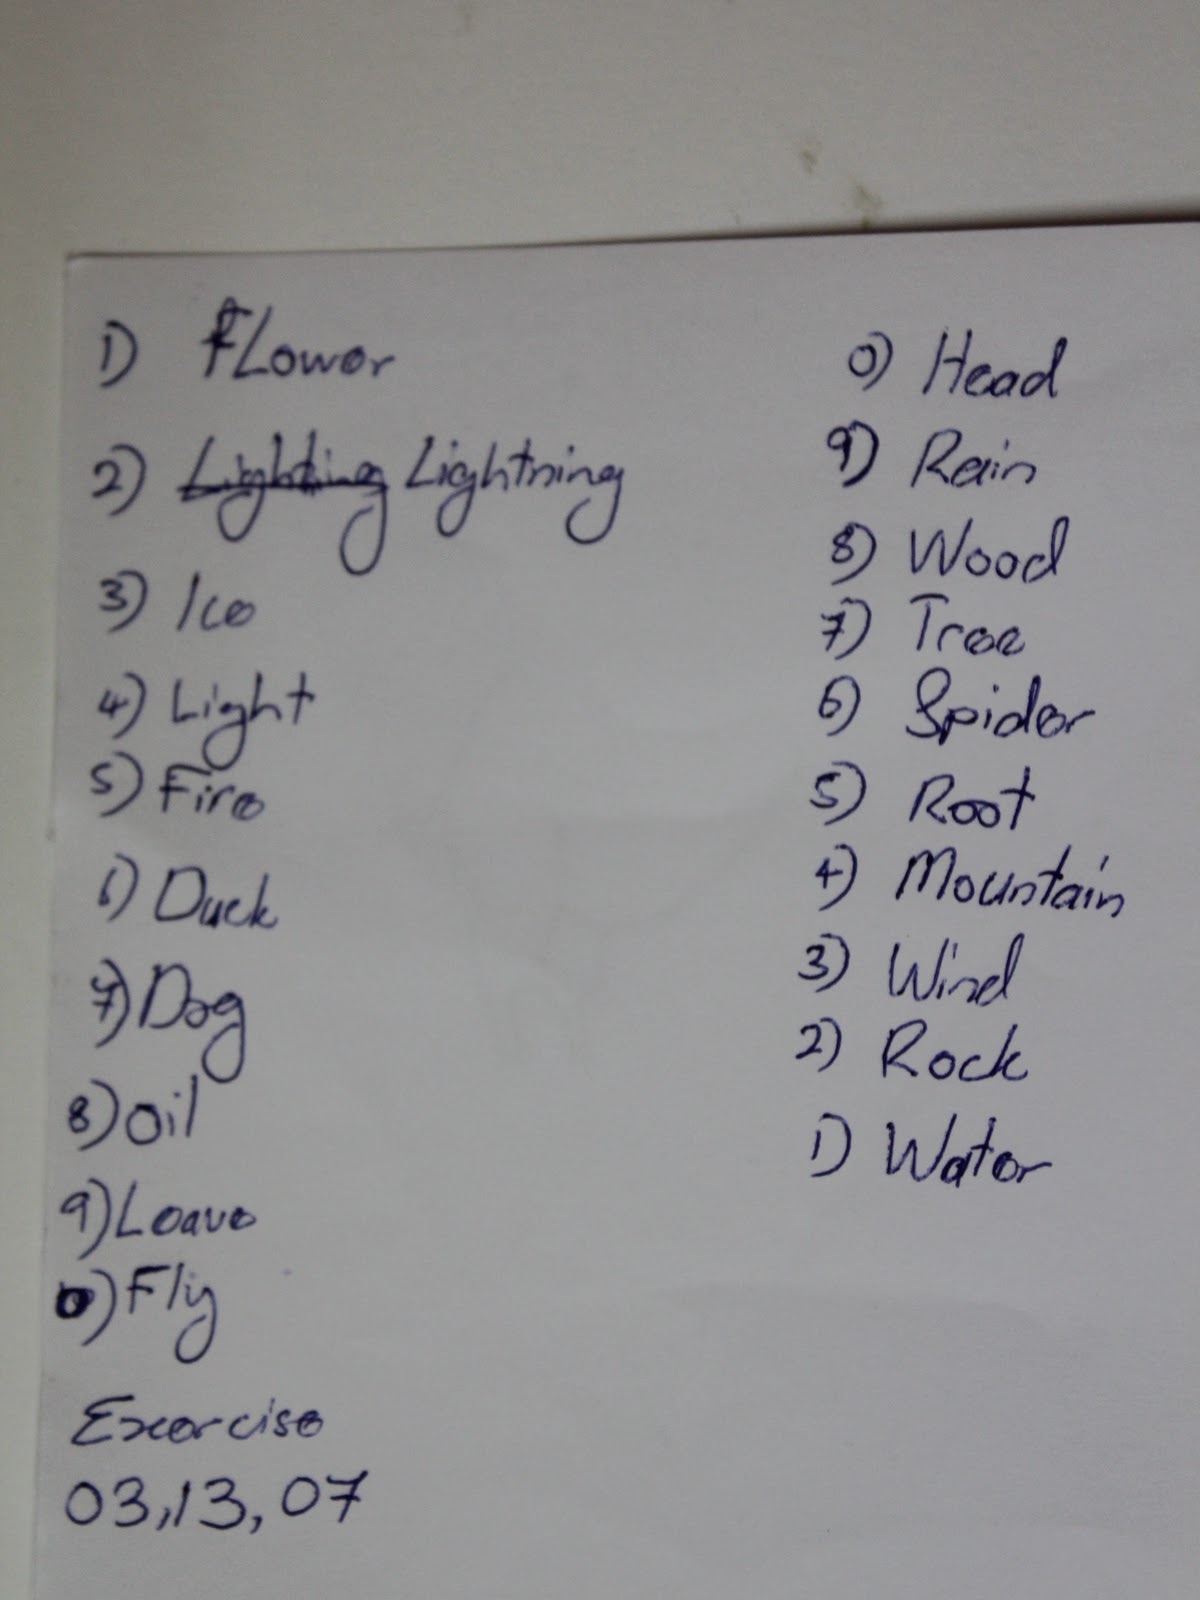 1) FLower
2) Lighting Lightning
3) Ice
4) Light
5) Fire
6) Duck
7) Dog
8) Oil
9) Leave
0) Fly
Exercise
03,13,07
0) Head
9) Rain
8) Wood
7) Tree
6) Spider
5) Root
4) Mountain
3) Wind
2) Rock
1) Water